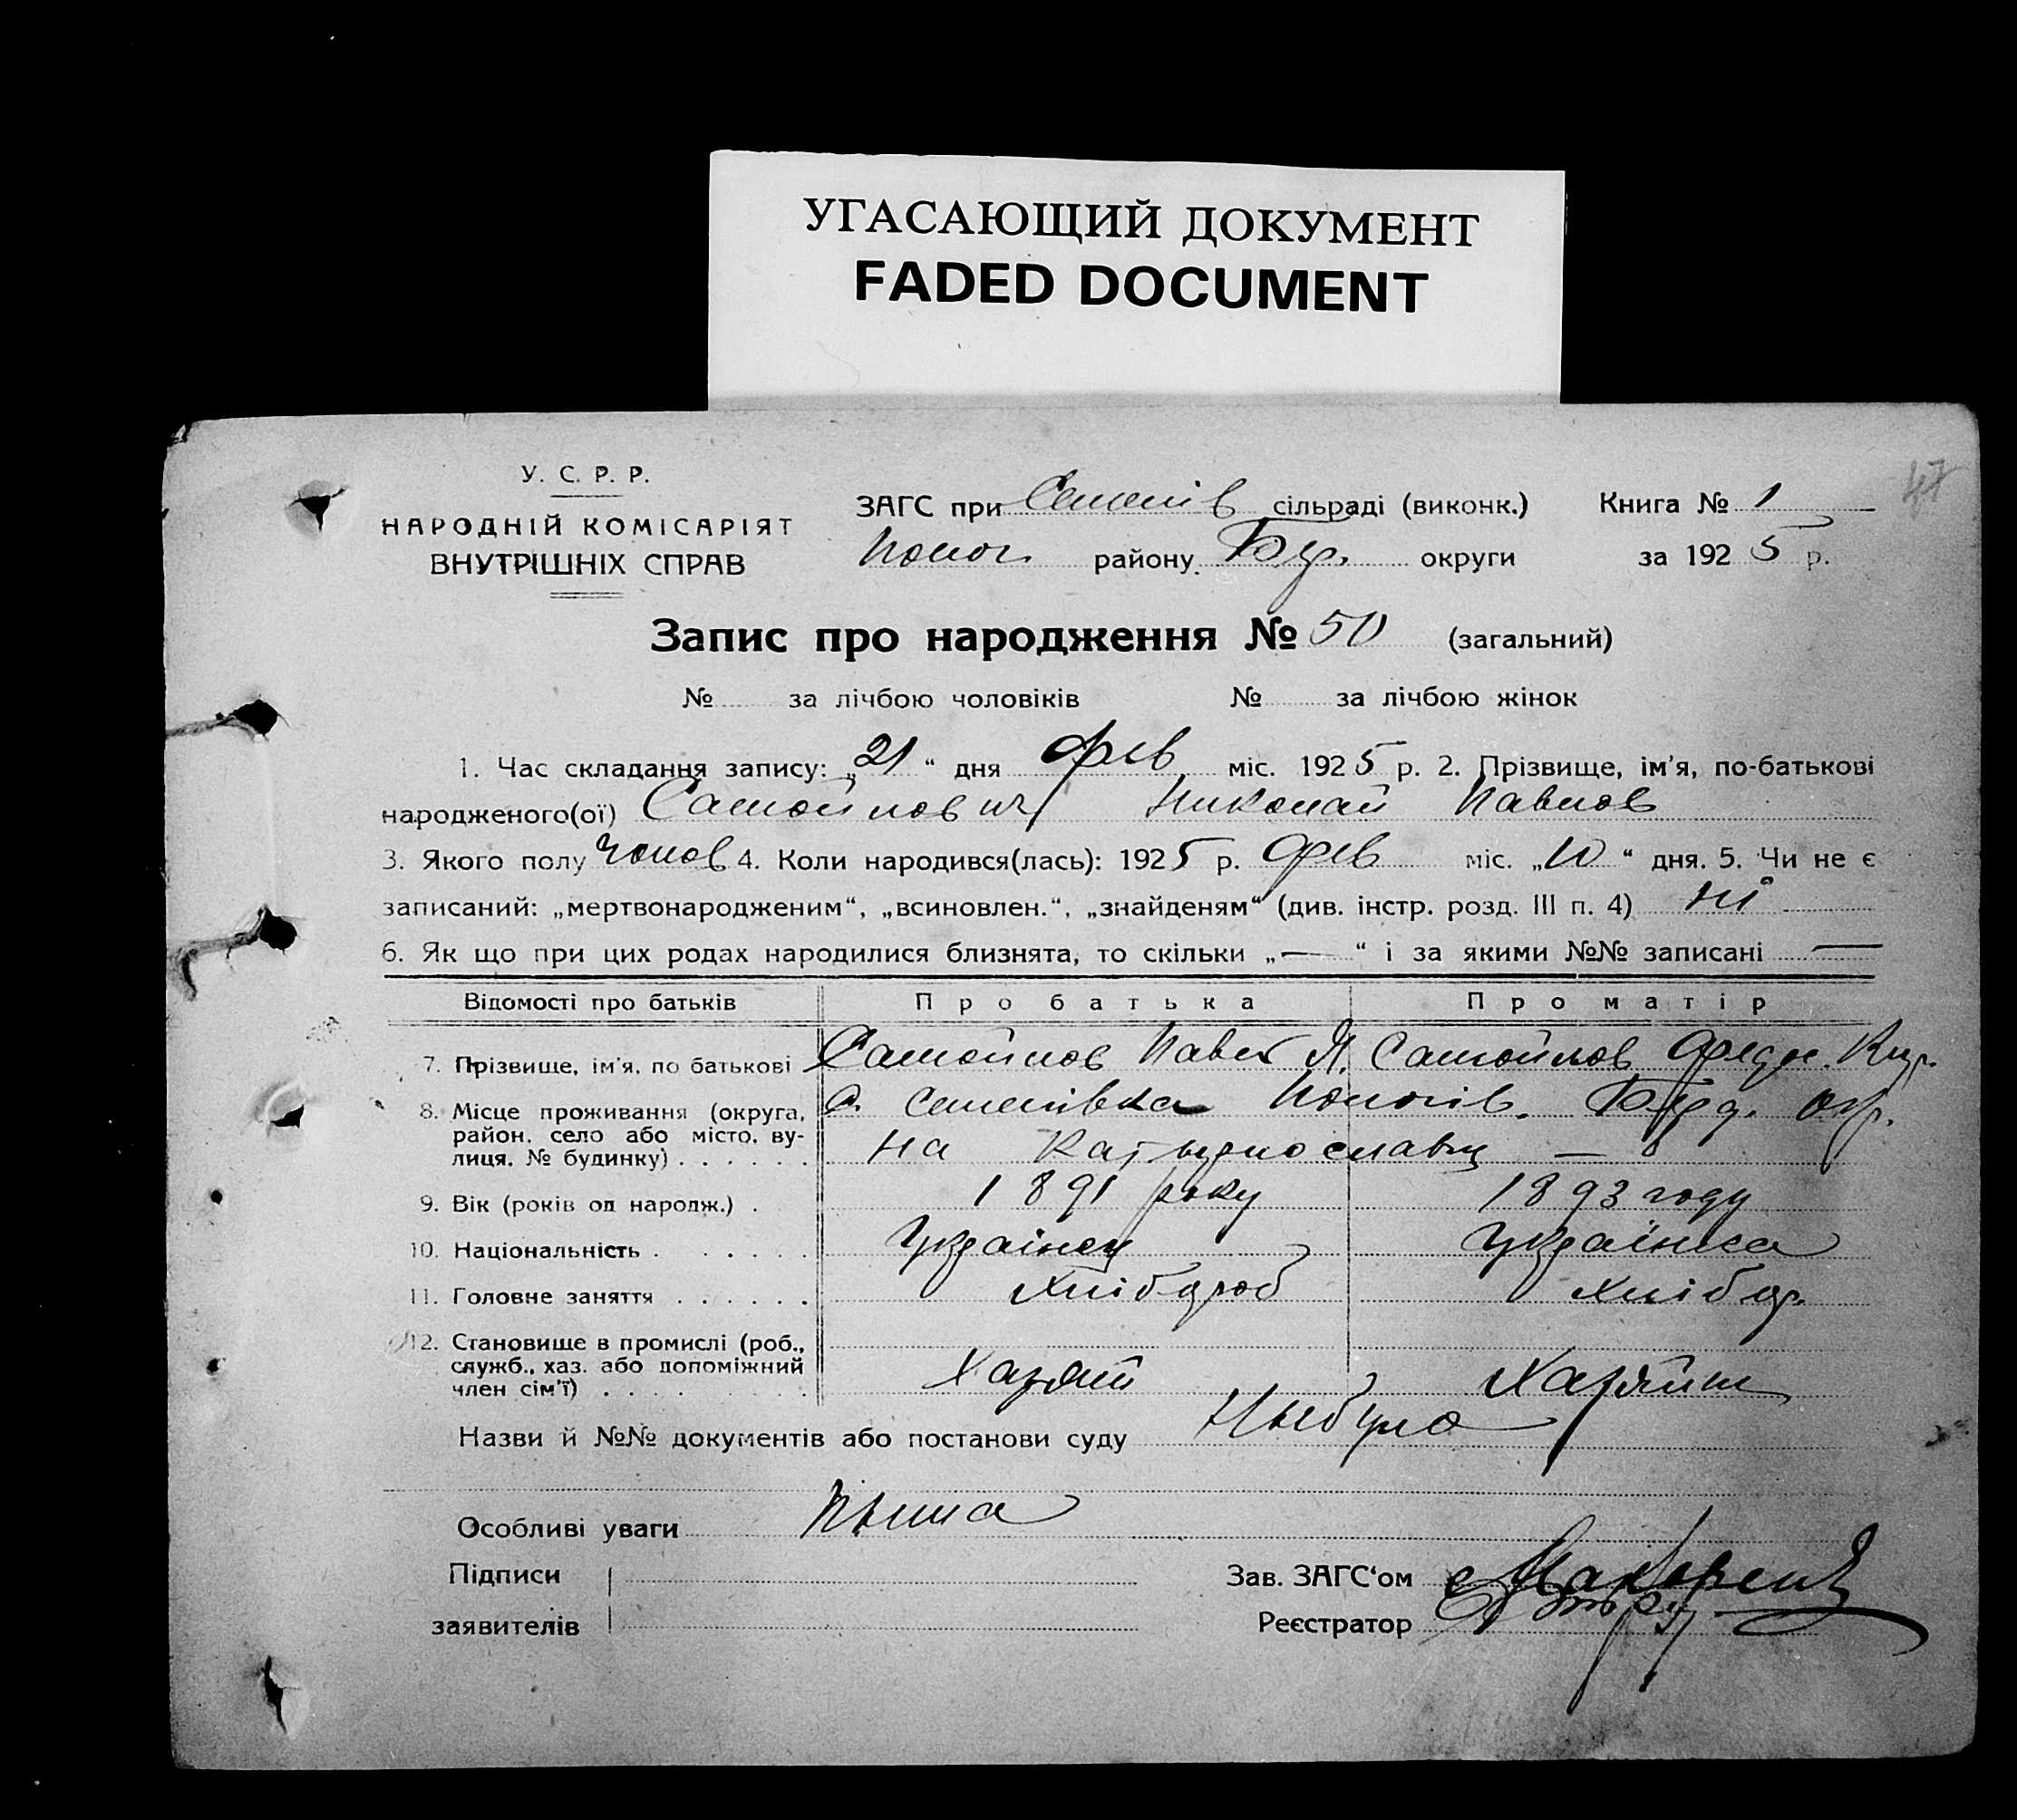 УГАСАЮЩИЙ ДОКУМЕНТ
FADED DOCUMENT
47
У. С. Р. Р.
НАРОДНІЙ КОМІСАРІЯТ
ВНУТРІШНІХ СПРАВ
ЗАГС при Семенів сільраді (виконк.) Книга № 1
Полог. району. Бер. округи за 1925 р.
Запис про народження № 50 (загальний)
№ за лічбою чоловіків № за лічбою жінок
1. Час складання запису: „21“ дня фев міс. 1925 р. 2. Прізвище, ім'я, по-батькові
народженого(ої) Самойлович Николай Павлов
3. Якого полу Чолов 4. Коли народився(лась): 1925 р. Фев міс. „10“ дня. 5. Чи не є
записаний: „мертвонародженим“, „всиновлен.“, „знайденям“ (див. інстр. розд. III п. 4) ні
6. Як що при цих родах народилися близнята, то скільки „—“ і за якими №№ записані —
Відомості про батьків Про батька Про матір
7. Прізвище, ім'я, по батькові Самойлов Павел Я. Самойлов Федос. Кир.
8. Місце проживання (округа, с. Семенівка Пологів. Берд. окр.
район, село або місто, ву-
лиця, № будинку) . . . . . . на —
9. Вік (років од народж.) . 1891 року 1893 году
10. Національність . . . . . . Українец Українка
11. Головне заняття . . . . . . Хлібороб Хлібор.
12. Становище в промислі (роб.,
служб., хаз. або допоміжний Хазяїн Хазяйн
член сім'ї) . . . . . . . .
Назви й №№ документів або постанови суду Небуло
Особливі уваги Ныма
Підписи Зав. ЗАГС'ом
заявителів Реєстратор